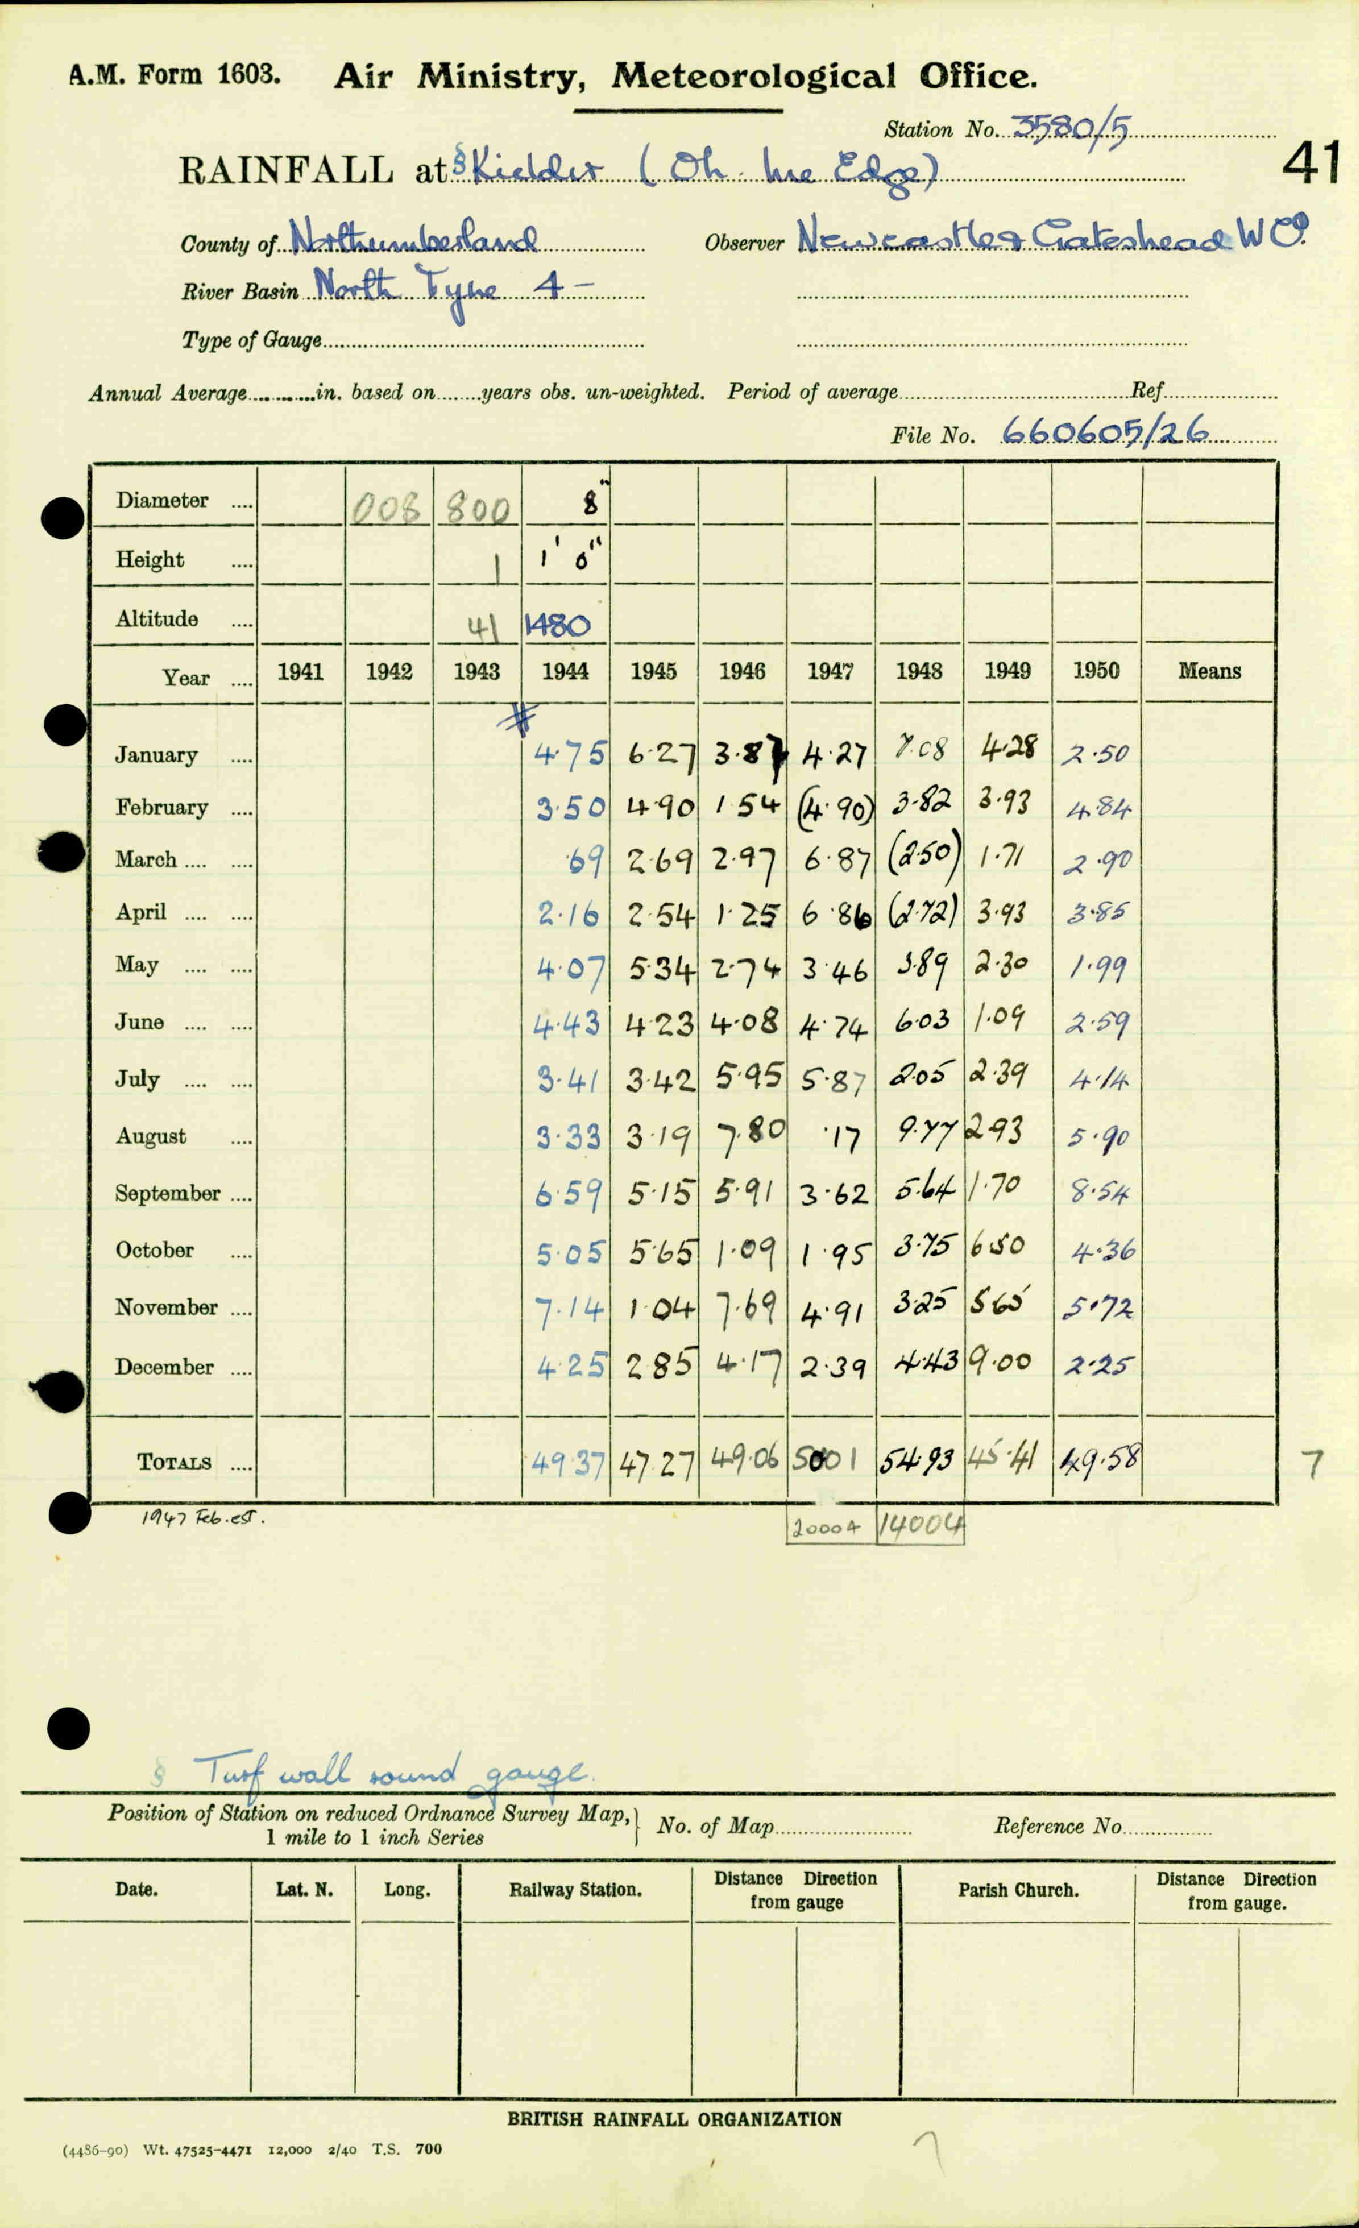 A.M. Form 1603. Air Ministry, Meteorological Office.
Station No. 3580/5
RAINFALL at § Kielder (Oh me Edge) 41
County of Northumberland Observer Newcastle & Gateshead W Co.
River Basin North Tyne 4 –
Type of Gauge
Annual Average in. based on years obs. un-weighted. Period of average Ref.
File No. 660605/26
Diameter .... 008 800 8"
Height .... 1 1' 0"
Altitude .... 41 1480
Year .... 1941 1942 1943 1944 1945 1946 1947 1948 1949 1950 Means
January .... 4.75 6.27 3.87 4.27 7.08 4.28 2.50
February .... 3.50 4.90 1.54 (4.90) 3.82 3.93 4.84
March .... .... .69 2.69 2.97 6.87 (2.50) 1.71 2.90
April .... .... 2.16 2.54 1.25 6.86 (2.72) 3.93 3.85
May .... .... 4.07 5.34 2.74 3.46 3.89 2.30 1.99
June .... .... 4.43 4.23 4.08 4.74 6.03 1.09 2.59
July .... .... 3.41 3.42 5.95 5.87 2.05 2.39 4.14
August .... 3.33 3.19 7.80 .17 9.77 2.93 5.90
September .... 6.59 5.15 5.91 3.62 5.64 1.70 8.54
October .... 5.05 5.65 1.09 1.95 3.75 6.50 4.36
November .... 7.14 1.04 7.69 4.91 3.25 5.65 5.72
December .... 4.25 2.85 4.17 2.39 4.43 9.00 2.25
TOTALS .... 49.37 47.27 49.06 5001 54.93 45.41 49.58 7
1947 Feb. est. 20004 14004
§ Turf wall round gauge.
Position of Station on reduced Ordnance Survey Map, } No. of Map Reference No.
1 mile to 1 inch Series
Date. Lat. N. Long. Railway Station. Distance Direction from gauge Parish Church. Distance Direction from gauge.
BRITISH RAINFALL ORGANIZATION
(4486-90) Wt. 47525-4471 12,000 2/40 T.S. 700
7